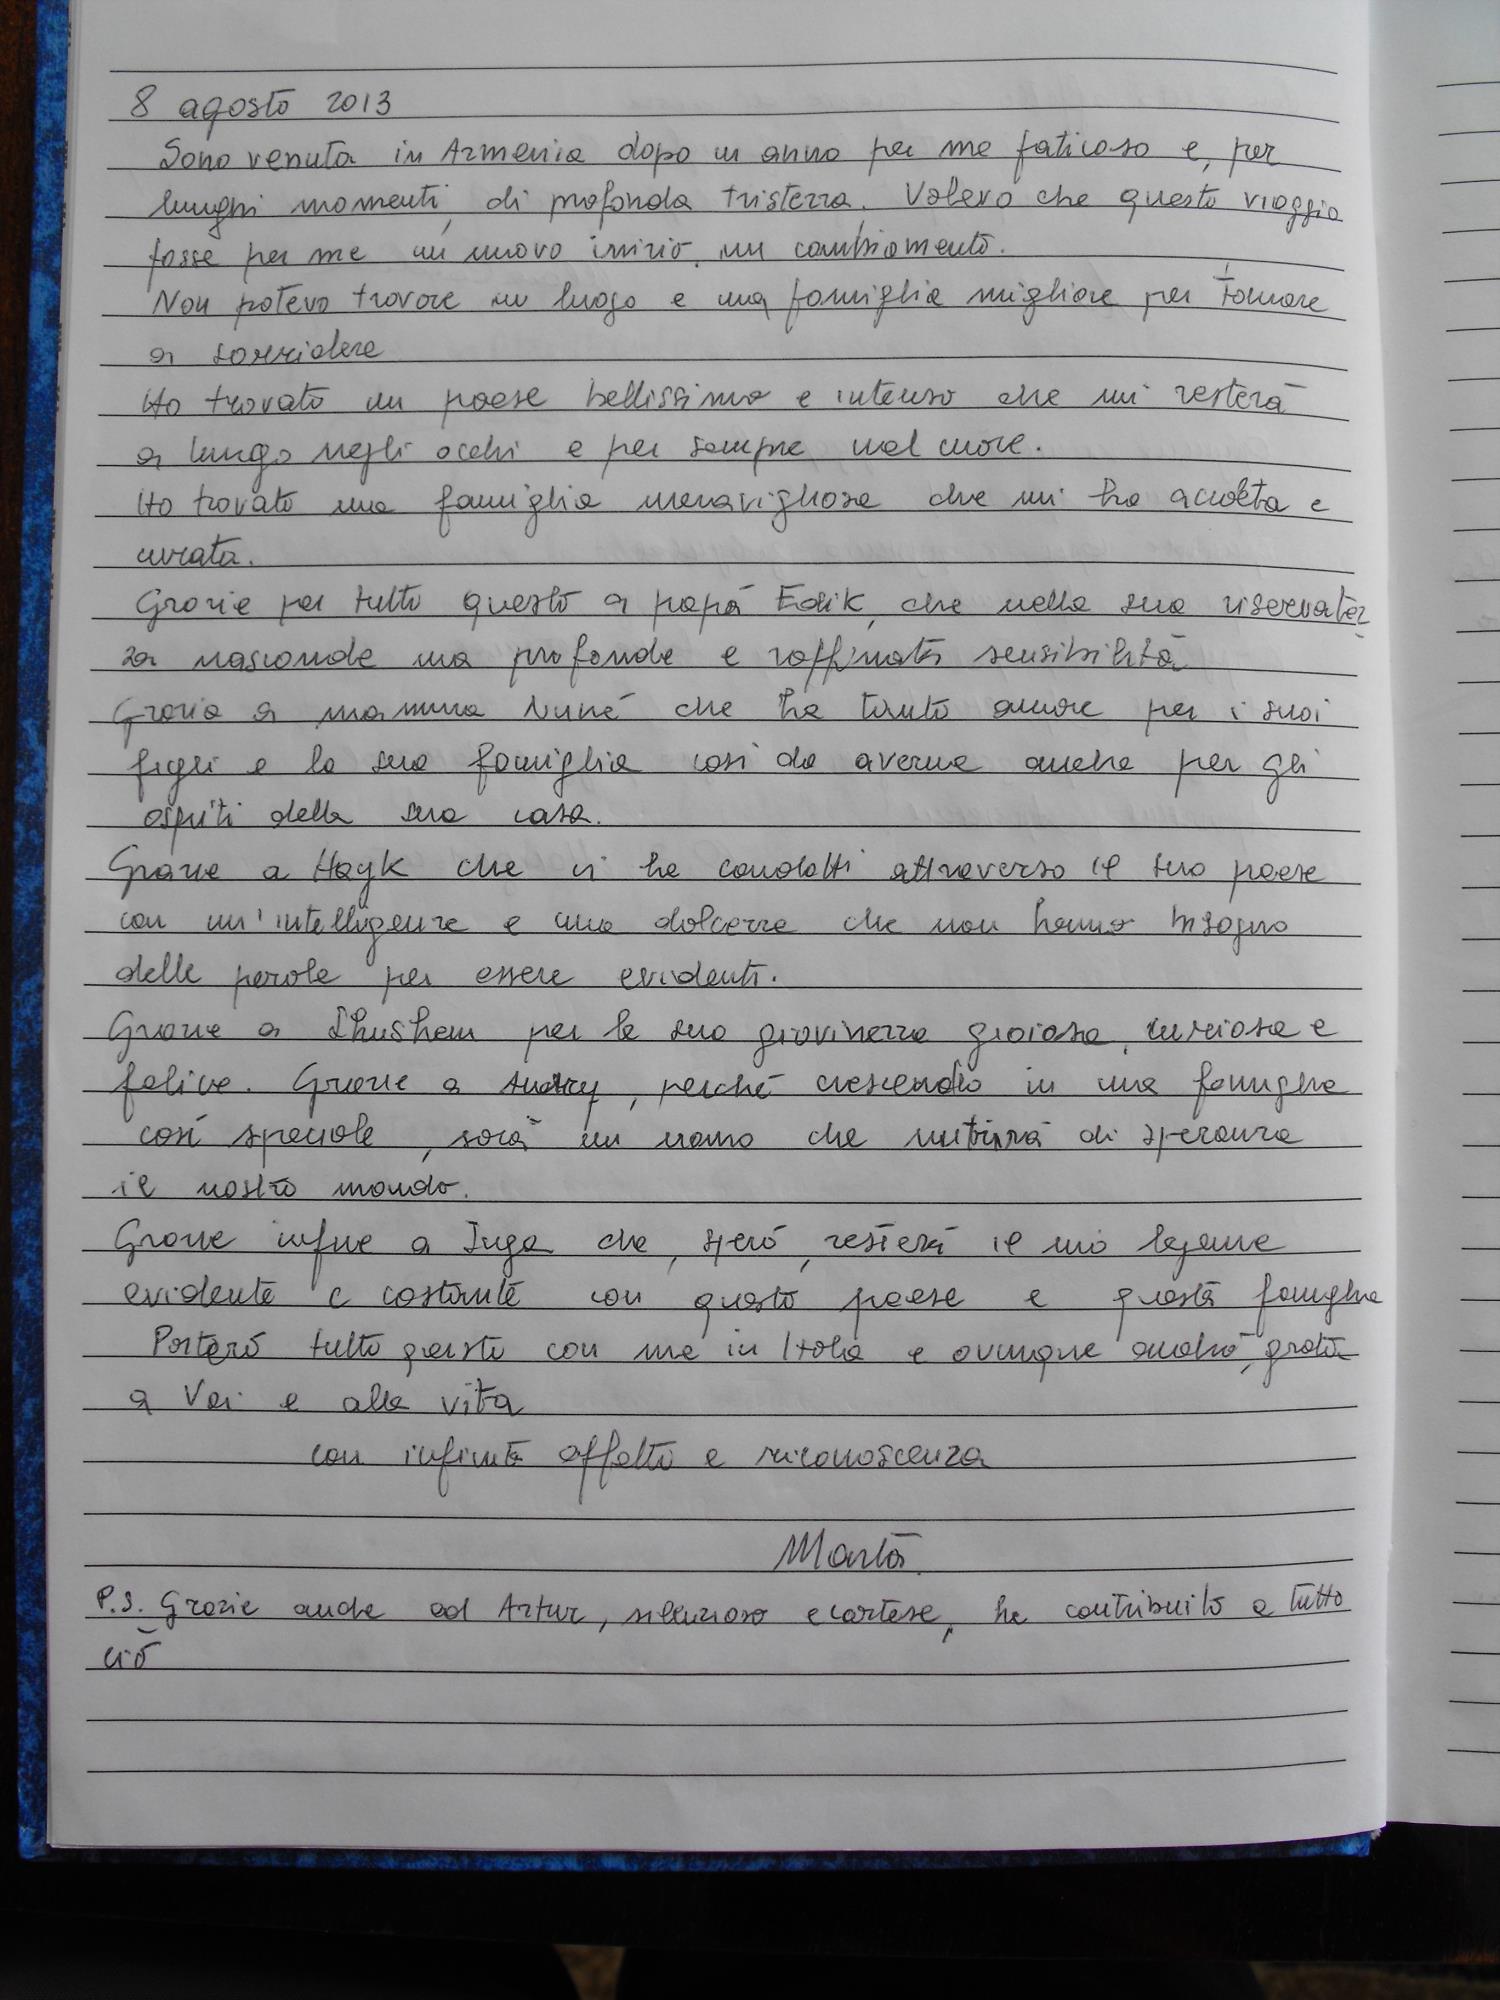 8 agosto 2013
Sono venuta in Armenia dopo un anno per me faticoso e, per
lunghi momenti, di profonda tristezza. Volevo che questo viaggio
fosse per me un nuovo inizio, un cambiamento.
Non potevo trovare un luogo e una famiglia migliore per tornare
a sorridere
Ho trovato un paese bellissimo e intenso che mi resterà
a lungo negli occhi e per sempre nel cuore.
Ho trovato una famiglia meravigliosa che mi ha accolta e
curata.
Grazie per tutto questo a papà Edik, che nella sua riservatez
za nasconde una profonda e raffinata sensibilità
Grazie a mamma Nuné che ha tanto amore per i suoi
figli e la sua famiglia così da averne anche per gli
ospiti della sua casa.
Grazie a Hayk che ci ha condotti attraverso il suo paese
con un'intelligenza e una dolcezza che non hanno bisogno
delle parole per essere evidenti.
Grazie a Shushem per la sua giovinezza gioiosa, curiosa e
felice. Grazie a , perché crescendo in una famiglia
così speciale, sarà un uomo che nutrirà di speranza
il nostro mondo.
Grazie infine a Inga che, spero, resterà il mio legame
evidente e costante con questo paese e questa famiglia
Porterò tutto questo con me in Italia e ovunque andrò, grata
a Voi e alla vita
con infinito affetto e riconoscenza
Marta
P.S. Grazie anche ad Artur, silenzioso e cortese, ha contribuito a tutto
ciò